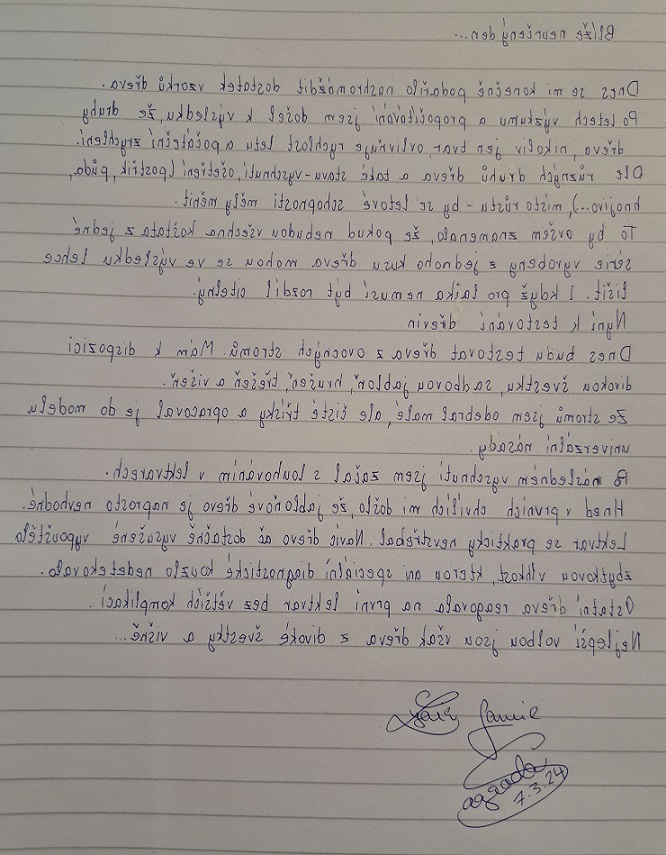 Blíže neurčený den...
Dnes se mi konečně podařilo nashromáždit dostatek vzorků dřeva.
Po letech výzkumu a propočítávání jsem došel k výsledku, že druhy
dřeva, nikoliv jen tvar, ovlivňuje rychlost letu a počáteční zrychlení.
Dle různých druhů dřeva a také stavu - vyschnutí, ošetření (postřik, půda,
hnojivo...), místo růstu - by se letové schopnosti měly měnit.
To by ovšem znamenalo, že pokud nebudou všechna košťata z jedné
série vyrobeny z jednoho kusu dřeva mohou se ve výsledku lehce
lišit. I když pro laika nemusí být rozdíl citelný.
Nyní k testování dřevin.
Dnes budu testovat dřeva z ovocných stromů. Mám k dispozici
divokou švestku, sadbovou jabloň, hrušeň, třešeň a višeň.
Ze stromů jsem odebral malé, ale čisté třísky a opracoval je do modelu
univerzální násady.
Po následném vyschnutí jsem začal s louhováním v lektvarech.
Hned v prvních chvílích mi došlo, že jabloňové dřevo je naprosto nevhodné.
Lektvar se prakticky nevstřebal. Navíc dřevo až vysušené vypouštělo
zbytkovou vlhkost, kterou ani speciální diagnostické kouzlo nedetekovalo.
Ostatní dřeva reagovala na první lektvar bez větších komplikací.
Nejlepší volbou jsou však dřeva z divoké švestky a višně...
Jamie
7.3.24